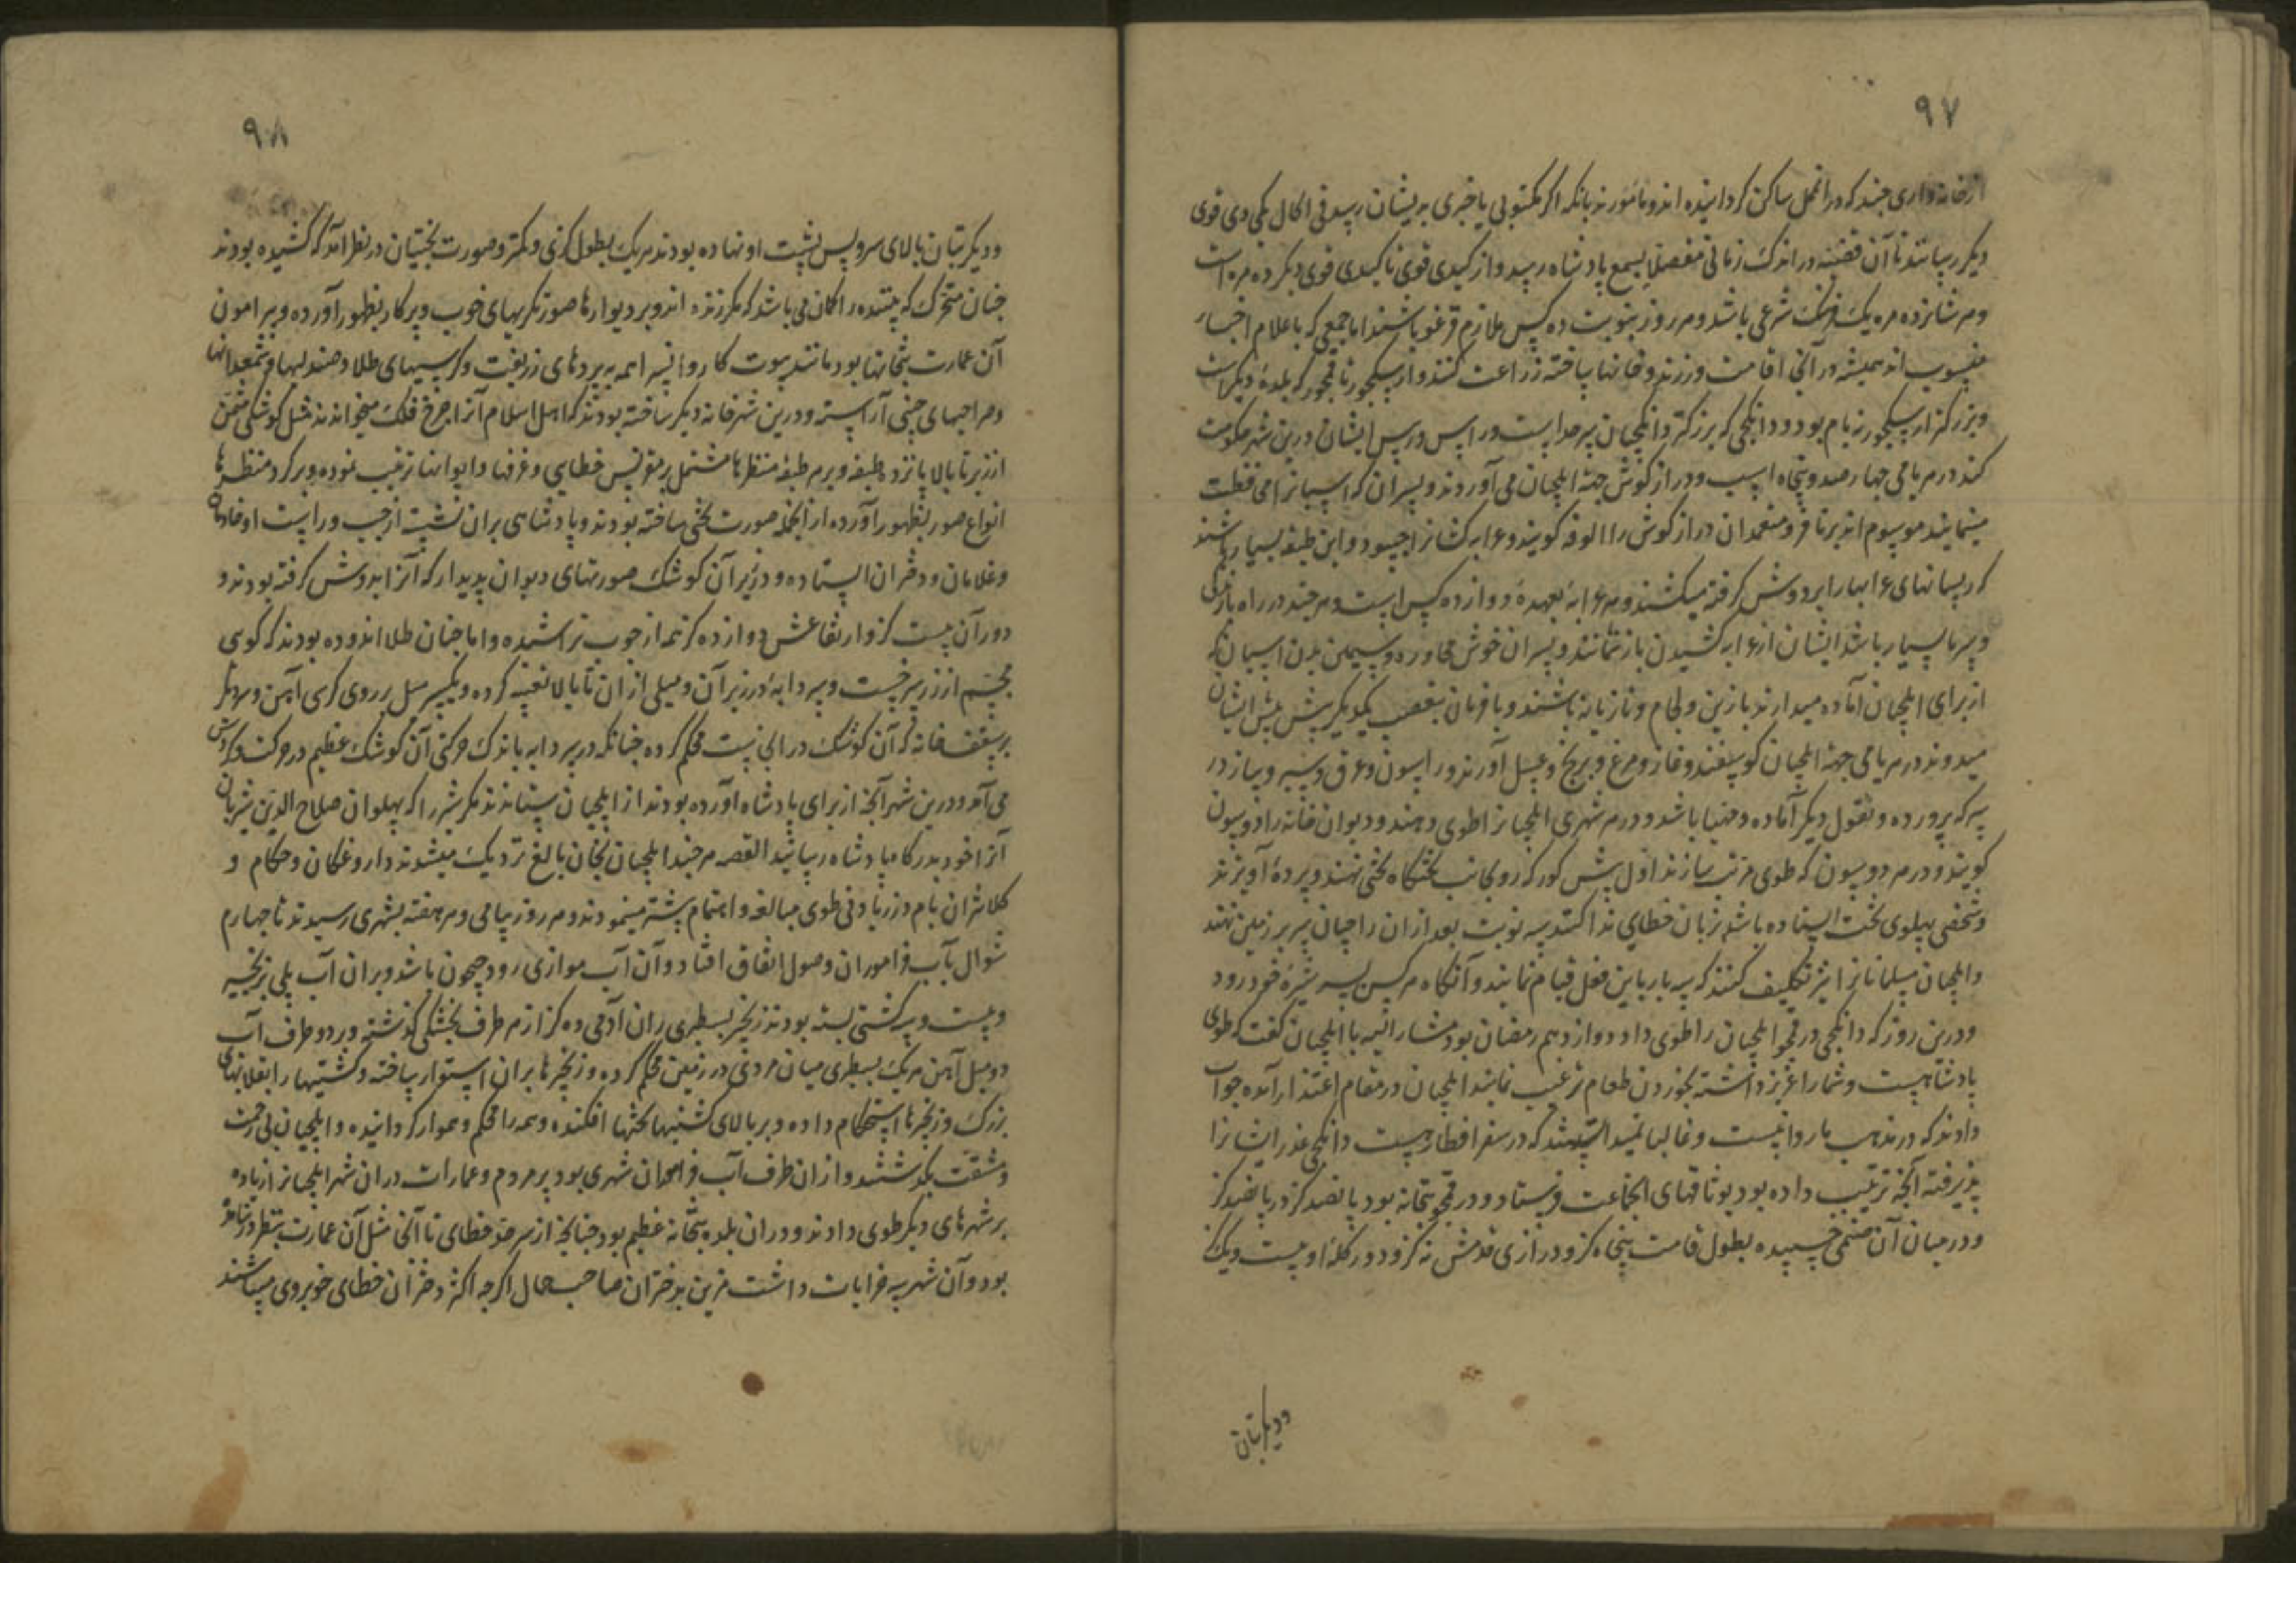 ۹۷
ازخانه‌داری چند که در انمحل ساکن گردانیده اند و مامورند بانکه اگر مکتوبی یا خبری بریشان رسد فی الحال بکی دی قوی
دیگر رسانند تا آن قضیه در اندک زمانی مفصلا بسمع پادشاه رسد و از کیدی قوی تا کیدی قوی دیگر ده مره است
و هر شانزده مره یک فرسنگ شرعی باشد و هر روز بنوبت ده کس ملازم قرغو باشند اما جمعی که باعلام اخبار
منسوب اند همیشه در آنجا اقامت ورزند و خانها ساخته زراعت کنند و از سکجو تا قمجو که بلده دیگر است
و بزرگتر از سکجو نه یام بود و دانکجی که بزرگتر دانکجیان سرحد است در
کند در هر یامی چهار صد و پنجاه اسپ و دراز گوش جهة ایلچیان می آوردند و پسران که اسپانرا محافظت
مینمایند موسوم اند برنا فو و متعهدان دراز گوش را الوفه گویند و عرابه کشانرا جیپو و این طبقه بسیار باشند
که ریسمانهای عرابها را بر دوش گرفته میکشند و هر عرابه بعهده دوازده کس است و هر چند در راه بارندگی
و سرما بسیار باشد ایشان از عرابه کشیدن باز نمانند و پسران خوش محاوره و سیمین بدن اسپان که
از برای ایلچیان آماده میدارند با زین و لجام و تازیانه باشند و با فرمان بتعصب یکدیگر پیش پیش ایشان
میدوند و در هر یامی جهة ایلچیان گوسفند و قاز و مرغ و برنج و عسل آورند و را سون و عرق و سیر و پیاز در
سرکه پرورده و بقول دیگر آماده و مهیا باشد و در هر شهری ایلچیانرا طوی دهند و دیوان خانه را دوسون
گویند و در هر دوسون که طوی مرتب سازند اول پیش کورکه رو بجانب تختگاه تختی نهند و پرده آویزند
و شخصی پهلوی تخت ایستاده باشد بزبان خطای ندا کند سه نوبت بعد از ان راجیان سر بر زمین نهند
و ایلچیان مسلمانانرا نیز تکلیف کنند که سه بار باین فعل قیام نمایند و آنگاه هر کس بسر شیره خود رود
و درین روز که دانکجی در قمجو ایلچیان را طوی داد دوازدهم رمضان بود مشارالیه با ایلچیان گفت که طوی
پادشاهیست و شما را عزیز داشته بخوردن طعام ترغیب نمایند ایلچیان در مقام اعتذار آمده جواب
دادند که در مذهب ما روا نیست و غالبا نمیدانستند که در سفر افطار هست دانکجی عذر ایشانرا
پذیرفته آنچه ترتیب داده بود بوثاقهای انجماعت فرستاد و در قمجو بتخانه بود پانصد گز در پانصد گز
و در میان آن صنمی خسپیده بطول قامت پنجاه گز و درازی قدمش نه گز و دور کله او بیست و یک گز
و دیگر بتان
۹۸
و دیگر بتان بالای سر و پس پشت او نهاده بودند هریک بطول گزی و کمتر و صورت بخشیان در نظر آمد که کشیده بودند
چنان متحرک که بیننده را گمان می باشد که مگر زنده اند و بر دیوارها صورتگریهای خوب و پرکار بظهور آورده و پیرامون
آن عمارت بتخانها بود مانند بیوت کاروانسرا همه به پردهای زربفت و کرسیهای طلا و صندلیها و شمعدانها
و صراحیهای چینی آراسته و درین شهر خانه دیگر ساخته بودند که اهل اسلام آنرا چرخ فلک میخواندند مثل کوشکی مثمن
از زیر تا بالا پانزده طبقه و بر هر طبقه منظرها مشتمل بر مقرنس خطایی و غرفها و ایوانها ترتیب نموده و بر گرد منظرها
انواع صور بظهور آورده از انجمله صورت تختی ساخته بودند و پادشاهی بران نشسته از چپ و راست او خادمان
و غلامان و دختران ایستاده و در زیر آن کوشک صورتهای دیوان پدیدار که آنرا بدوش گرفته بودند و
دور آن بیست گز و ارتفاعش دوازده گز همه از چوب تراشیده و اما چنان طلا اندوده بودند که گویی
مجسم از زر سرخست و سردابه در زیر آن و میلی از ان تا بالا تعبیه کرده و یکسر میل بر روی کرسی آهن و سر دیگر
بر سقف خانه که آن کوشک در انجا نیست محکم کرده چنانکه در سردابه باندک حرکتی آن کوشک عظیم در حرکت و گردش
می آمد و درین شهر آنچه از برای پادشاه آورده بودند از ایلچیان ستاندند مگر شیر را که پهلوان صلاح الدین شیربان
آنرا خود بدرگاه پادشاه رسانید القصه هر چند ایلچیان بخان بالغ نزدیک میشدند داروغگان و حکام و
کلانتران یام در زیادتی طوی مبالغه و اهتمام بیشتر مینمودند و هر روز بیامی و هر هفته بشهری رسیدند تا چهارم
شوال بآب قراموران وصول اتفاق افتاد و آن آب موازی رود جیحون باشد و بران آب پلی بزنجیر
و بیست و سه کشتی بسته بودند زنجیر بسطبری ران آدمی ده گز از هر طرف بخشکی گذشته و بر دو طرف آب
دو میل آهن هریک بسطبری میان مردی در زمین محکم کرده و زنجیرها بران استوار ساخته و کشتیها را بقلابهای
بزرگ و زنجیرها استحکام داده و بر بالای کشتیها تختها افکنده و همه را محکم و هموار گردانیده و ایلچیان بی زحمت
و مشقت بگذشتند و از ان طرف آب قراموران شهری بود پر مردم و عمارات در ان شهر ایلچیانرا زیاده
بر شهرهای دیگر طوی دادند و در ان بلده بتخانه عظیم بود چنانچه از سرحد خطای تا آنجا مثل آن عمارت بنظر در نیامده
بود و آن شهر سه خرابات داشت مزین بدختران صاحب جمال اگرچه اکثر دختران خطای خوبروی میباشند